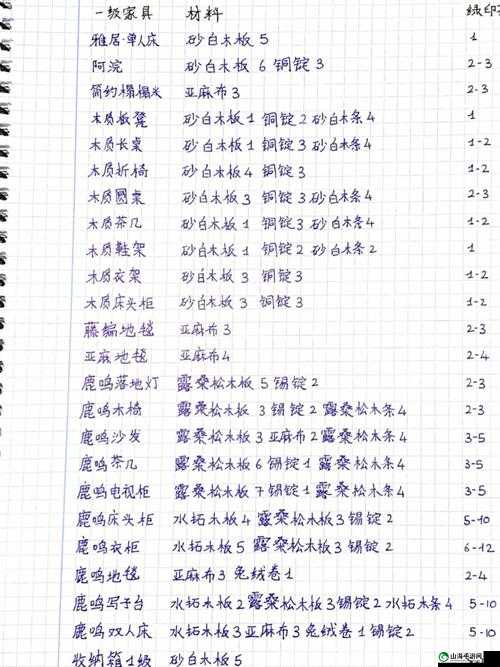 一级家具 材料
雅居·单人床 砂白木板5 1
阿浣 砂白木板6 铜锭3 2-3
简约榻榻米 亚麻布3 2-3
木质板凳 砂白木板1 铜锭2 砂白木条4 1
木质长桌 砂白木板1 铜锭3 砂白木条4 1-2
木质折椅 砂白木板4 铜锭3 1-2
木质圆桌 砂白木板3 铜锭3 砂白木条4 2-3
木质茶几 砂白木板1 铜锭3 砂白木条4 1-2
木质鞋架 砂白木板1 铜锭2 砂白木条2 1
木质衣架 砂白木板3 铜锭3 1-2
木质床头柜 砂白木板3 铜锭3 1-2
藤编地毯 亚麻布3 2-3
亚麻地毯 亚麻布4 2-4
鹿鸣落地灯 露桑松木板5 锡锭2 2-3
鹿鸣木椅 露桑松木板3 锡锭2 露桑松木条4 2-3
鹿鸣沙发 露桑松木板3 亚麻布2 露桑松木条4 3-5
鹿鸣茶几 露桑松木板6 锡锭1 露桑松木条4 3-5
鹿鸣电视柜 露桑松木板7 锡锭1 露桑松木条4 3-5
鹿鸣床头柜 水拓木板4 露桑松木板3 锡锭2 5-10
鹿鸣衣柜 水拓木板5 露桑松木板3 锡锭2 6-12
鹿鸣地毯 亚麻布3 兔绒卷1 2-4
鹿鸣写字台 水拓木板2 露桑松木板3 锡锭2 水拓木条4 5-10
鹿鸣双人床 水拓木板3 亚麻布3 兔绒卷1 锡锭2 5-10
收纳箱1级 砂白木板5
山海手游网